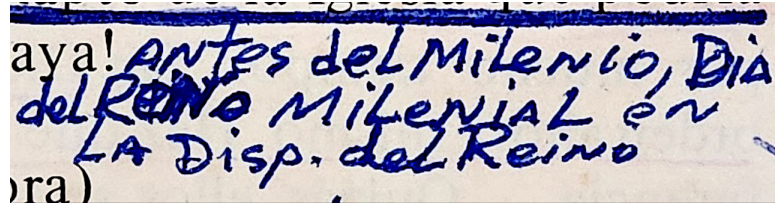 aya! Antes del Milenio, Dia
del Reino Milenial en
La Disp. del Reino
ora)